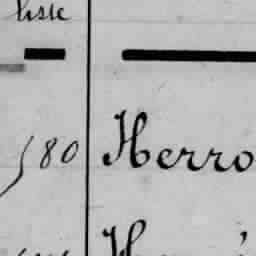 liste
580 Herro